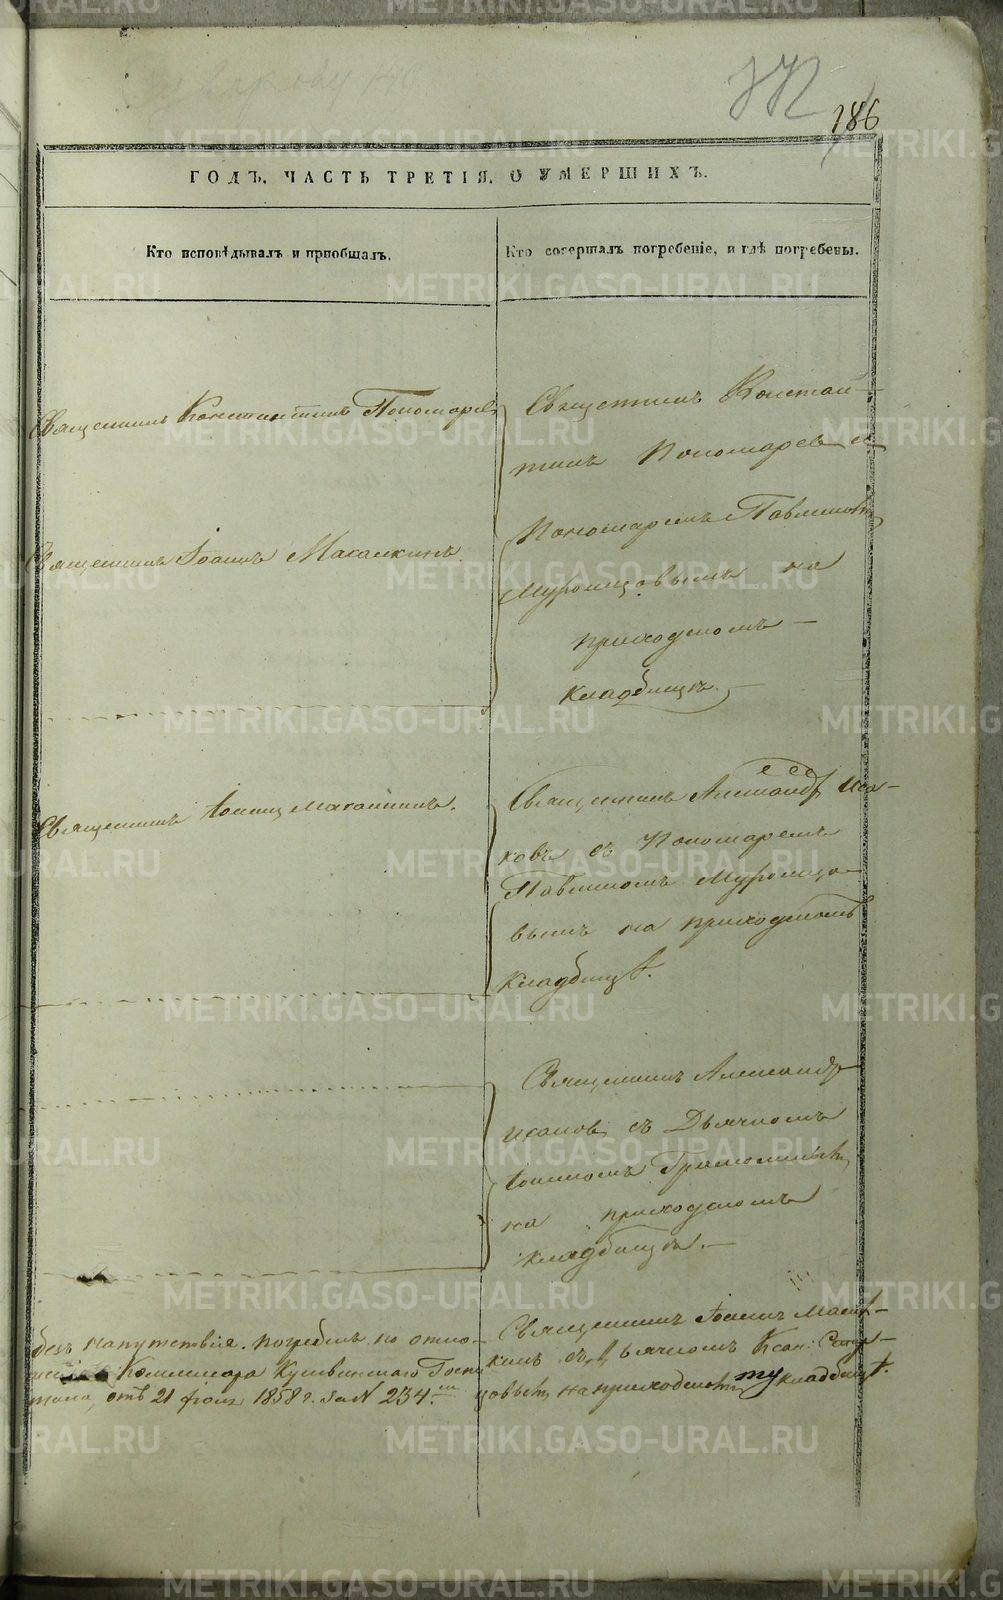 186
ГОДЪ. ЧАСТЬ ТРЕТІЯ. О УМЕРШИХЪ.
Кто исповѣдывалъ и пріобщалъ.
Кто совершалъ погребеніе, и гдѣ погребены.
Священникъ Константинъ Пономаревъ
Священникъ Іоаннъ Макалкинъ.
Священникъ Констан-
тинъ Пономаревъ съ
Пономаремъ Павлиномъ
Муромцовымъ на
приходскомъ
кладбищѣ.
Священникъ Іоаннъ Макалкинъ.
Священникъ Александръ Иса-
ковъ съ Пономаремъ
Павлиномъ Муромцо-
вымъ на приходскомъ
кладбищѣ.
Священникъ Александръ
Исаковъ съ Дьячкомъ
Іоанномъ
на приходскомъ
кладбищѣ.
безъ напутствія. погребенъ по отно-
Коммисара Кушвинскаго Госпи
таля, отъ 21 Іюля 1858 г. за N 234.
Священникъ Іоаннъ
кинъ съ Дьячкомъ
на приходскомъ кладбищѣ.
METRIKI.GASO-URAL.RU